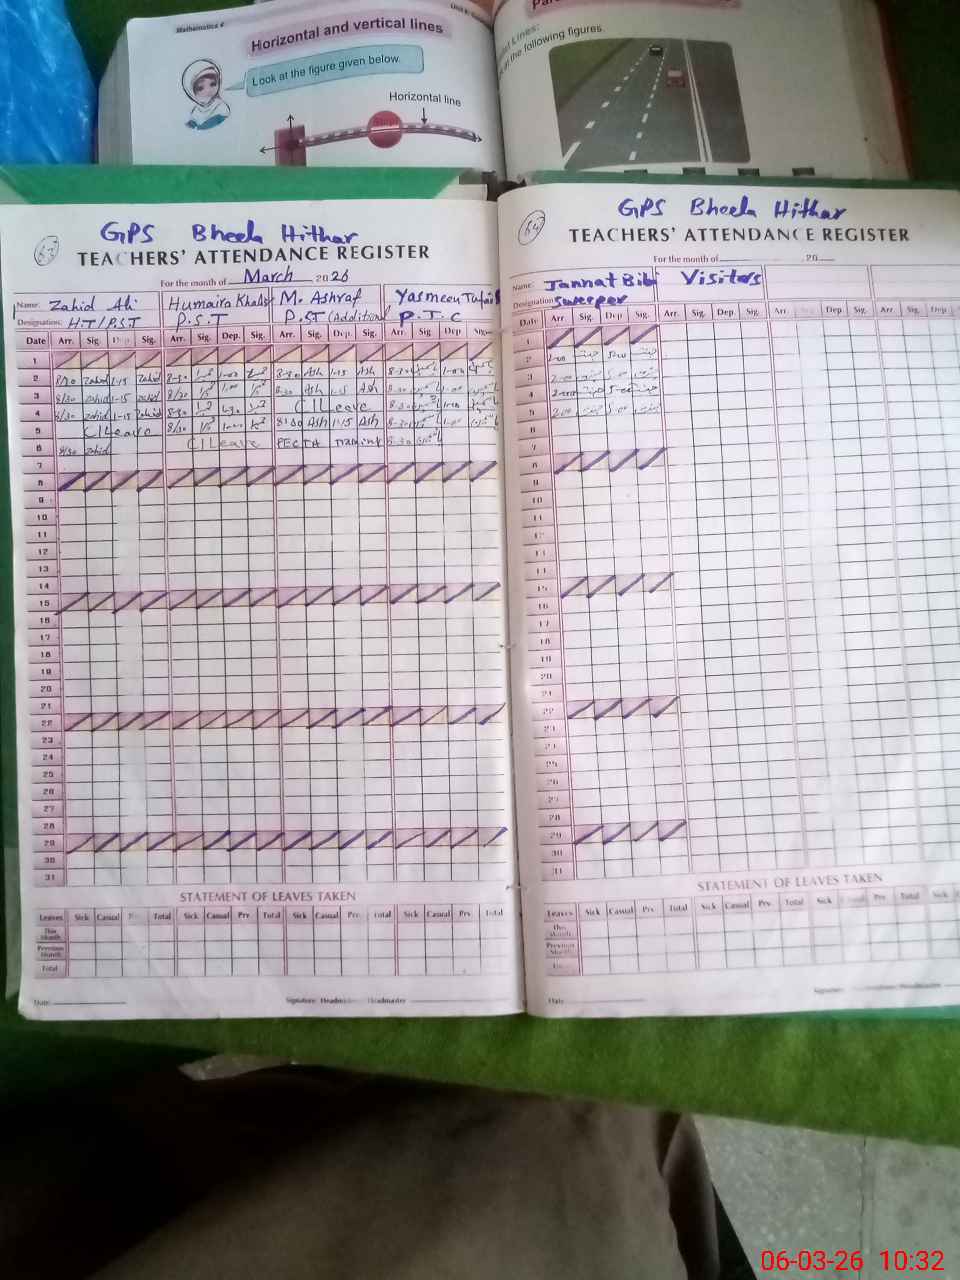 Mathematics 4
Horizontal and vertical lines
Look at the figure given below.
Horizontal line
Stop
Lines:
at the following figures.
63
GPS Bheela Hithar
TEACHERS' ATTENDANCE REGISTER
For the month of March 2026
Name: Zahid Ali Humaira Khalid M. Ashraf Yasmeen Tufail
Designation: H.T/P.S.T P.S.T P.ST (Additional P.T.C
Date Arr. Sig. Dep. Sig. Arr. Sig. Dep. Sig. Arr. Sig. Dep. Sig. Arr. Sig. Dep. Sig.
1
2 8/30 Zahid 1-15 Zahid 8-30 1-00 8-30 Ash 1-15 Ash 8-30 1-00
3 8/30 Zahid 1-15 Zahid 8/30 1.00 8-30 Ash 1-15 Ash 8-30 1-00
4 8/30 Zahid 1-15 Zahid 8-30 C/Leave 8-30 1-00
5 C/Leave 8/30 1-00 8:30 Ash 1-15 Ash 8-30 1-00
6 8/30 Zahid C/Leave PECTA Training 8-30
7
8
9
10
11
12
13
14
15
16
17
18
19
20
21
22
23
24
25
26
27
28
29
30
31
STATEMENT OF LEAVES TAKEN
Leaves Sick Casual Prv. Total Sick Casual Prv. Total Sick Casual Prv. Total Sick Casual Prv. Total
This Month
Previous Month
Total
Date: Signature: Headmaster / Headmaster
64
GPS Bheela Hithar
TEACHERS' ATTENDANCE REGISTER
For the month of 20
Name: Jannat Bibi Visitors
Designation: Sweeper
Date Arr. Sig. Dep. Sig. Arr. Sig. Dep. Sig. Arr. Sig. Dep. Sig. Arr. Sig. Dep
1
2 2-00 5-00
3 2-00 5-00
4 2-00 5-00
5 2-00 5-00
6
7
8
9
10
11
12
13
14
15
16
17
18
19
20
21
22
23
24
25
26
27
28
29
30
31
STATEMENT OF LEAVES TAKEN
Leaves Sick Casual Prv. Total Sick Casual Prv. Total Sick Casual Prv. Total Sick
This Month
Previous Month
Date Signature: Headmistress/Headmaster
06-03-26 10:32